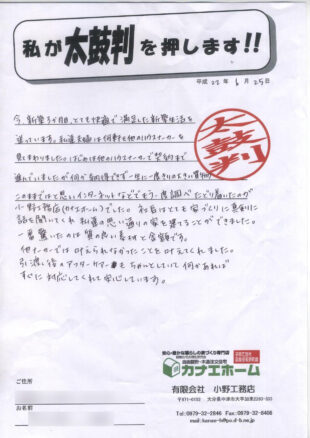 私が太鼓判を押します!!
平成 22年 6月 25日
太鼓判
今、新築3ヶ月、とても快適で満足した新築生活を
送っています。私達夫婦は何軒も他のハウスメーカーを
見てまわりました。はじめは他のハウスメーカーで契約まで
進んでいましたが何か納得できず一生に一度きりの大きい買物
このままではと思いインターネットなどでもう一度調べたどり着いたのが
小野工務店(カナエホーム)でした。社長はとても家づくりに真剣に
話を聞いてくれ私達の思い通りの家を建てることができました。
一番驚いたのは質の良い素材と金額です。
他メーカーでは叶えられなかったことを叶えてくれました。
引渡し後のアフターケアーもちゃんとしていて何かあれば
すぐに対応してくれて安心しています。
安心・豊かな暮らしの家づくり専門店
自由設計・木造注文住宅
カナエホーム
有限会社 小野工務店
〒871-0153 大分県中津市大字加来2283-533
Tel:0979-32-2846 Fax:0979-32-6406
ご住所
お名前